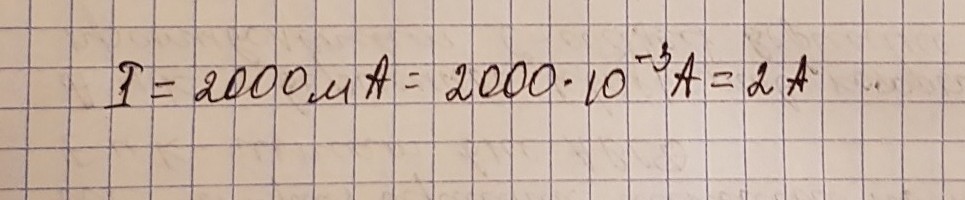 I = 2000 мА = 2000 · 10⁻³ А = 2 А